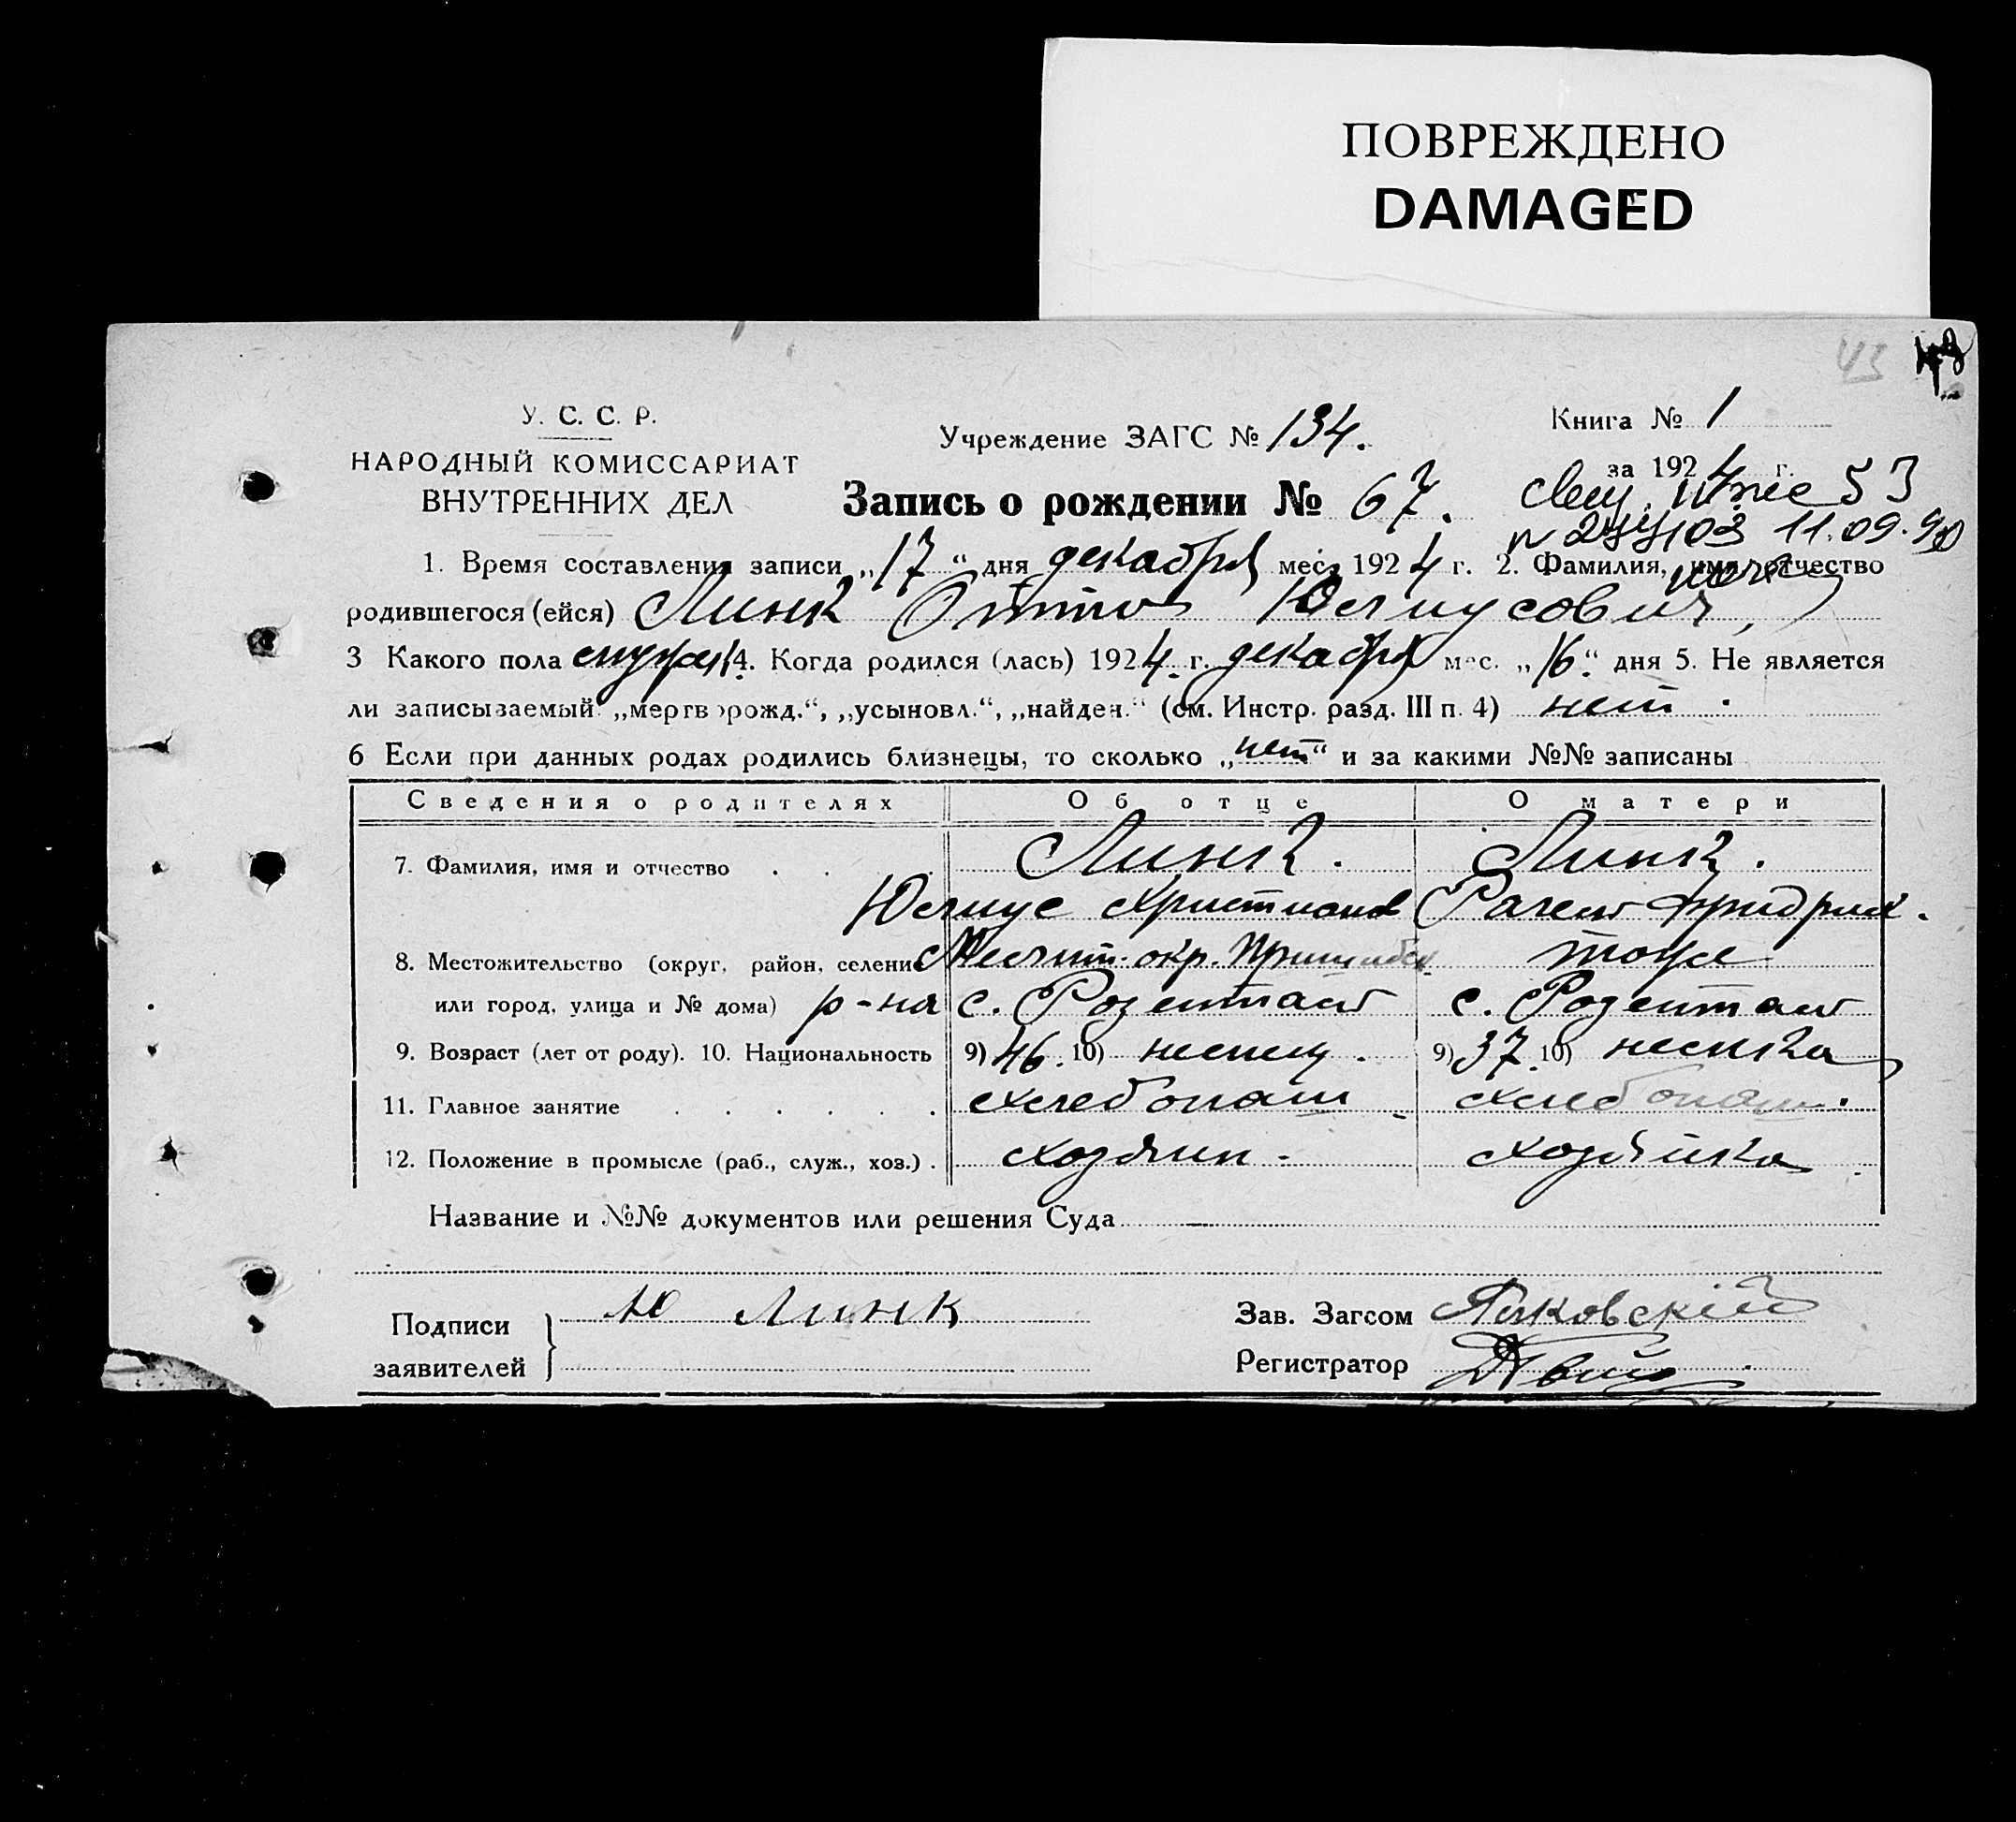 ПОВРЕЖДЕНО
DAMAGED
43
У. С. С. Р.
НАРОДНЫЙ КОМИССАРИАТ
ВНУТРЕННИХ ДЕЛ
Учреждение ЗАГС № 134.
Книга № 1
за 1924 г.
Запись о рождении № 67.
11.09.90
1. Время составления записи „17“ дня декабря мес. 1924 г. 2. Фамилия, имя, отчество
родившегося (ейся) Линк Отто Юлиусович,
3 Какого пола мужск. 4. Когда родился (лась) 1924 г. декабря мес. „16“ дня 5. Не является
ли записываемый „мертворожд.“, „усыновл.“, „найден.“ (см. Инстр. разд. III п. 4) нет.
6 Если при данных родах родились близнецы, то сколько „нет“ и за какими №№ записаны
Сведения о родителях Об отце О матери
7. Фамилия, имя и отчество Линк. Линк.
Юлиус Христианов Фридрих.
8. Местожительство (округ, район, селение Мелит. окр. Пришибск. тоже
или город, улица и № дома) р-на с. Розенталь с. Розенталь
9. Возраст (лет от роду). 10. Национальность 9) 46. 10) немец. 9) 37. 10) немка
11. Главное занятие хлебопаш хлебопаш.
12. Положение в промысле (раб., служ., хоз.). хозяин. хозяйка
Название и №№ документов или решения Суда —
Подписи заявителей Ю Линк
Зав. Загсом
Регистратор